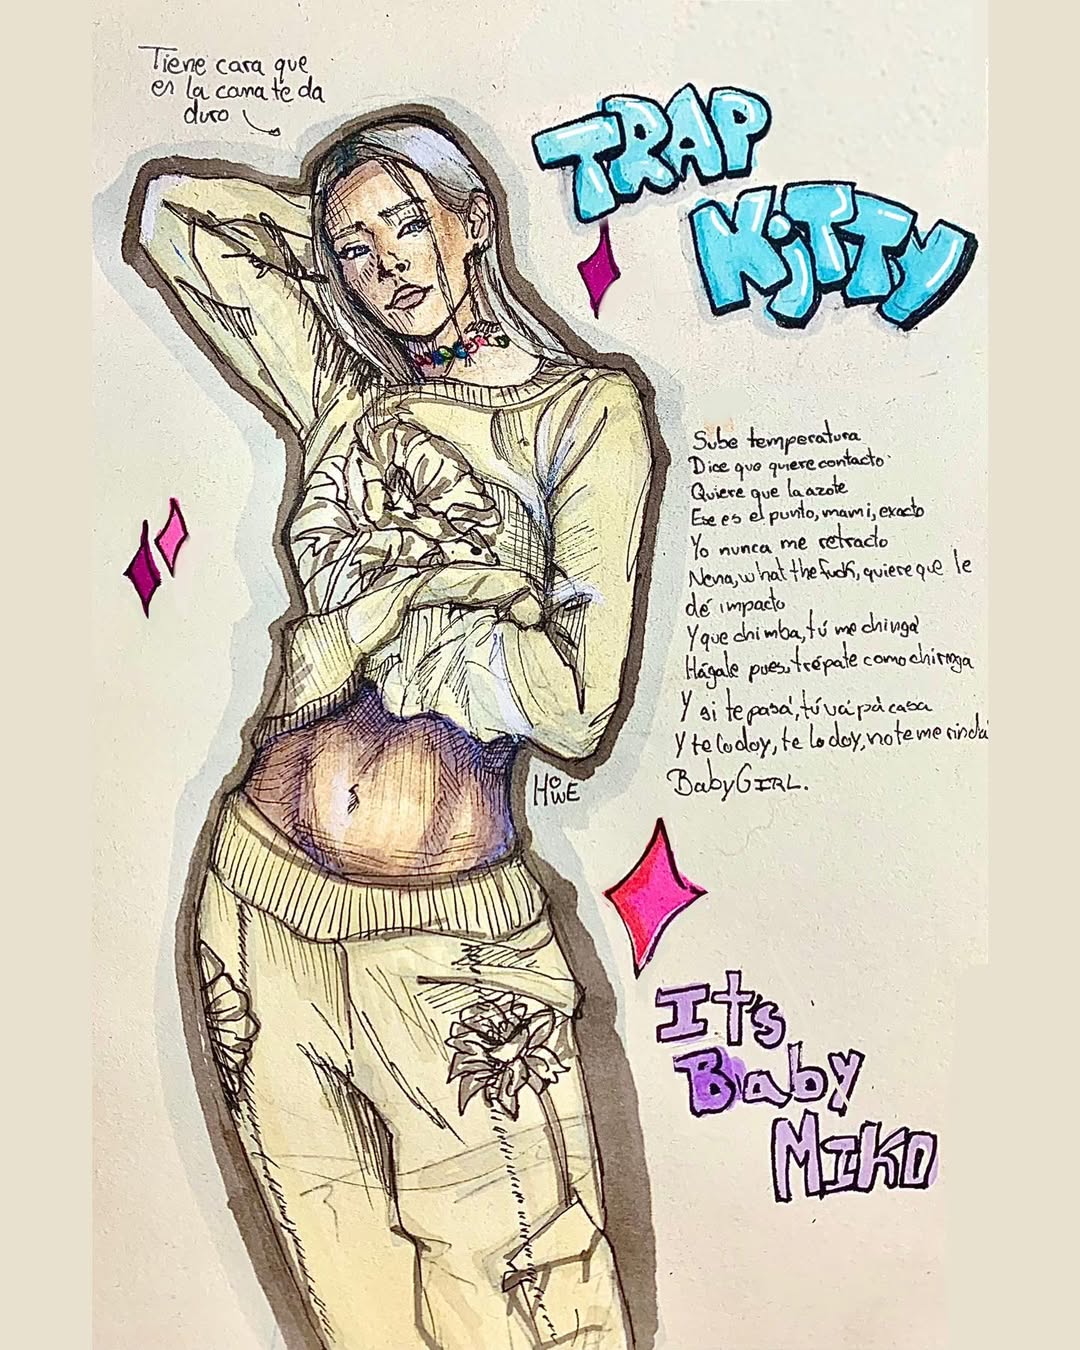 Tiene cara que
en la cama te da
duro
TRAP
KiTTY
Sube temperatura
Dice que quiere contacto
Quiere que la azote
Ese es el punto, mami, exacto
Yo nunca me retracto
Nena, what the fuck, quiere que le
dé impacto
Y que chimba, tú me chinga
Hágale pues, trépate como chiringa
Y si te pasá, tú vá pá casa
Y te lo doy, te lo doy, no te me rindá
BabyGIRL.
HowE
It's
Baby
MIKO